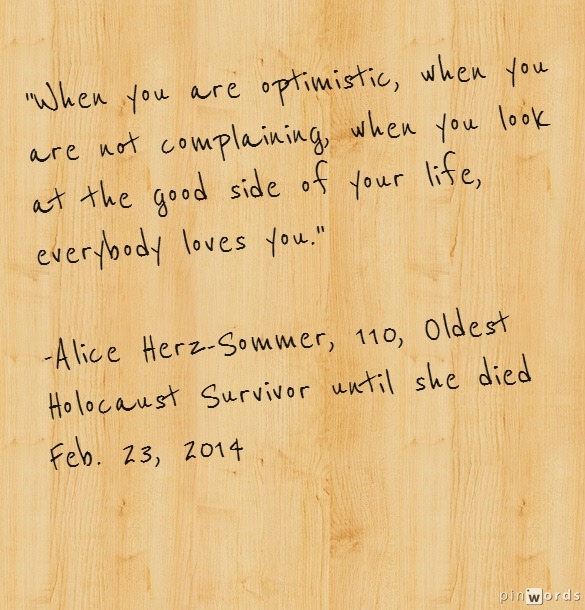 "When you are optimistic, when you
are not complaining, when you look
at the good side of your life,
everybody loves you."
-Alice Herz-Sommer, 110, Oldest
Holocaust Survivor until she died
Feb. 23, 2014
pinwords